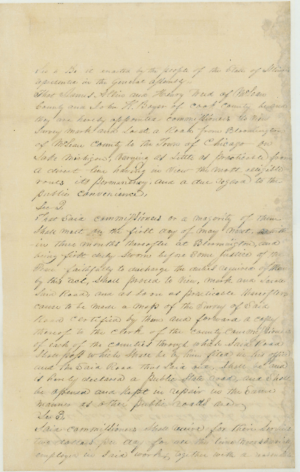 Sec 1 Be it enacted by the people of the State of Illinois
represented in the General Assembly
That James Allin and Henry of McLean
County and John H. of Cook County be and
they are hereby appointed commissioners to view
Survey mark and locate a Road from Bloomington
of McLean County to the Town of Chicago on
Lake Michigan, varying as little as practicable from
a direct line having in view the most eligible
route its permanency and a due regard to the
public convenience
Sec 2
That said commissioners or a majority of them
Shall meet on the first day of May next or with
in three months thereafter at Bloomington and
being first duly sworn before some Justice of the
Peace faithfully to discharge the duties required of them
by this act, shall proceed to view, mark and
said Road, and as soon as practicable thereafter
cause to be made a map of the Survey of said
Road certified by them and forward a copy
thereof to the clerk of the County Commissioners
of each of the counties through which said Road
shall pass which shall be by him filed in his office
and the said Road thus laid out shall be and
is hereby declared a public State road and shall
be opened and kept in repair in the same
manner as other public roads are
Sec 3
Said commissioners shall receive for their services
two dollars per day for the time necessarily
employed in said work, together with a